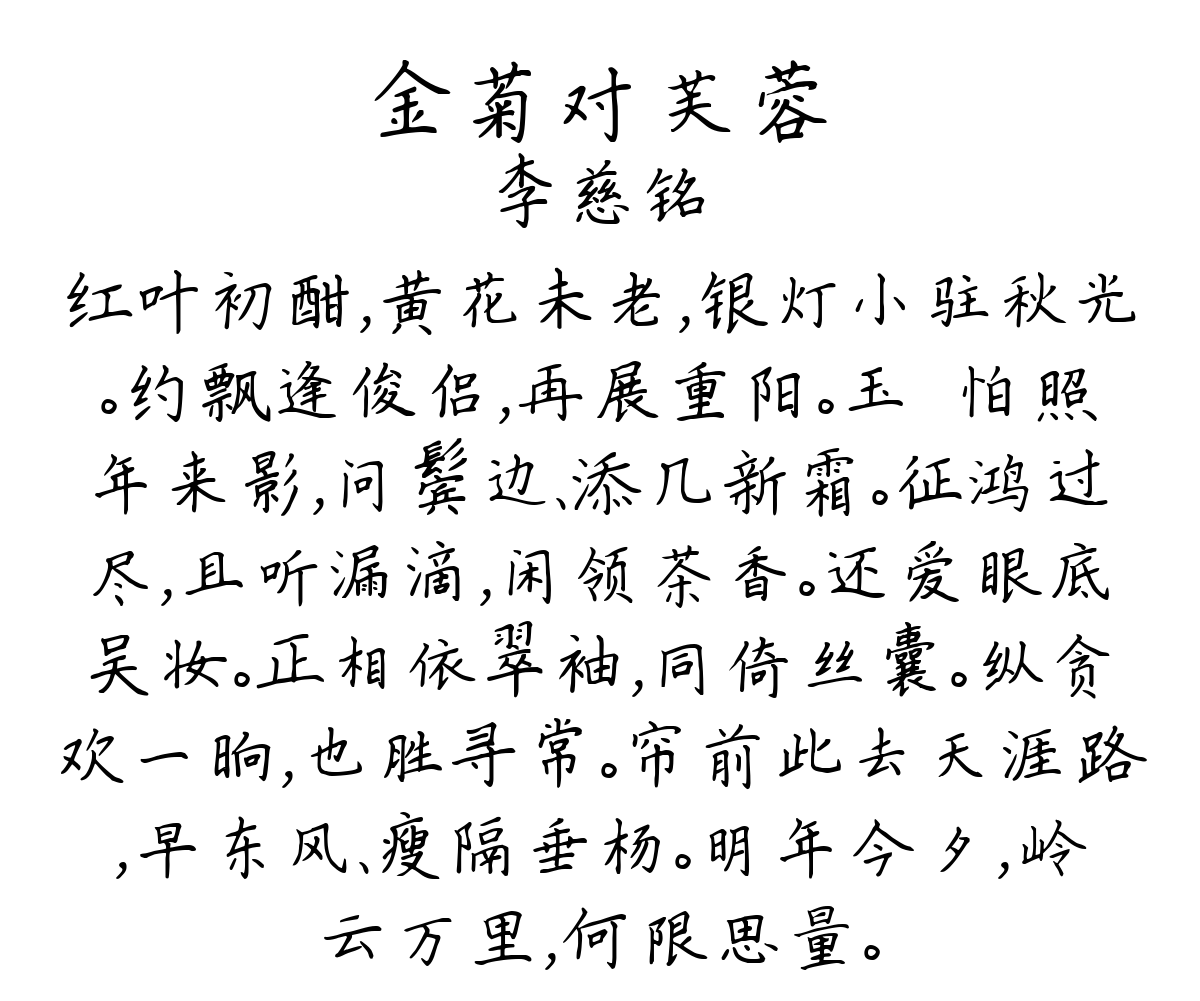 金菊对芙蓉
李慈铭
红叶初酣,黄花未老,银灯小驻秋光
。约飘逢俊侣,再展重阳。玉 怕照
年来影,问鬓边、添几新霜。征鸿过
尽,且听漏滴,闲领茶香。还爱眼底
吴妆。正相依翠袖,同倚丝囊。纵贪
欢一晌,也胜寻常。帘前此去天涯路
,早东风、瘦隔垂杨。明年今夕,岭
云万里,何限思量。